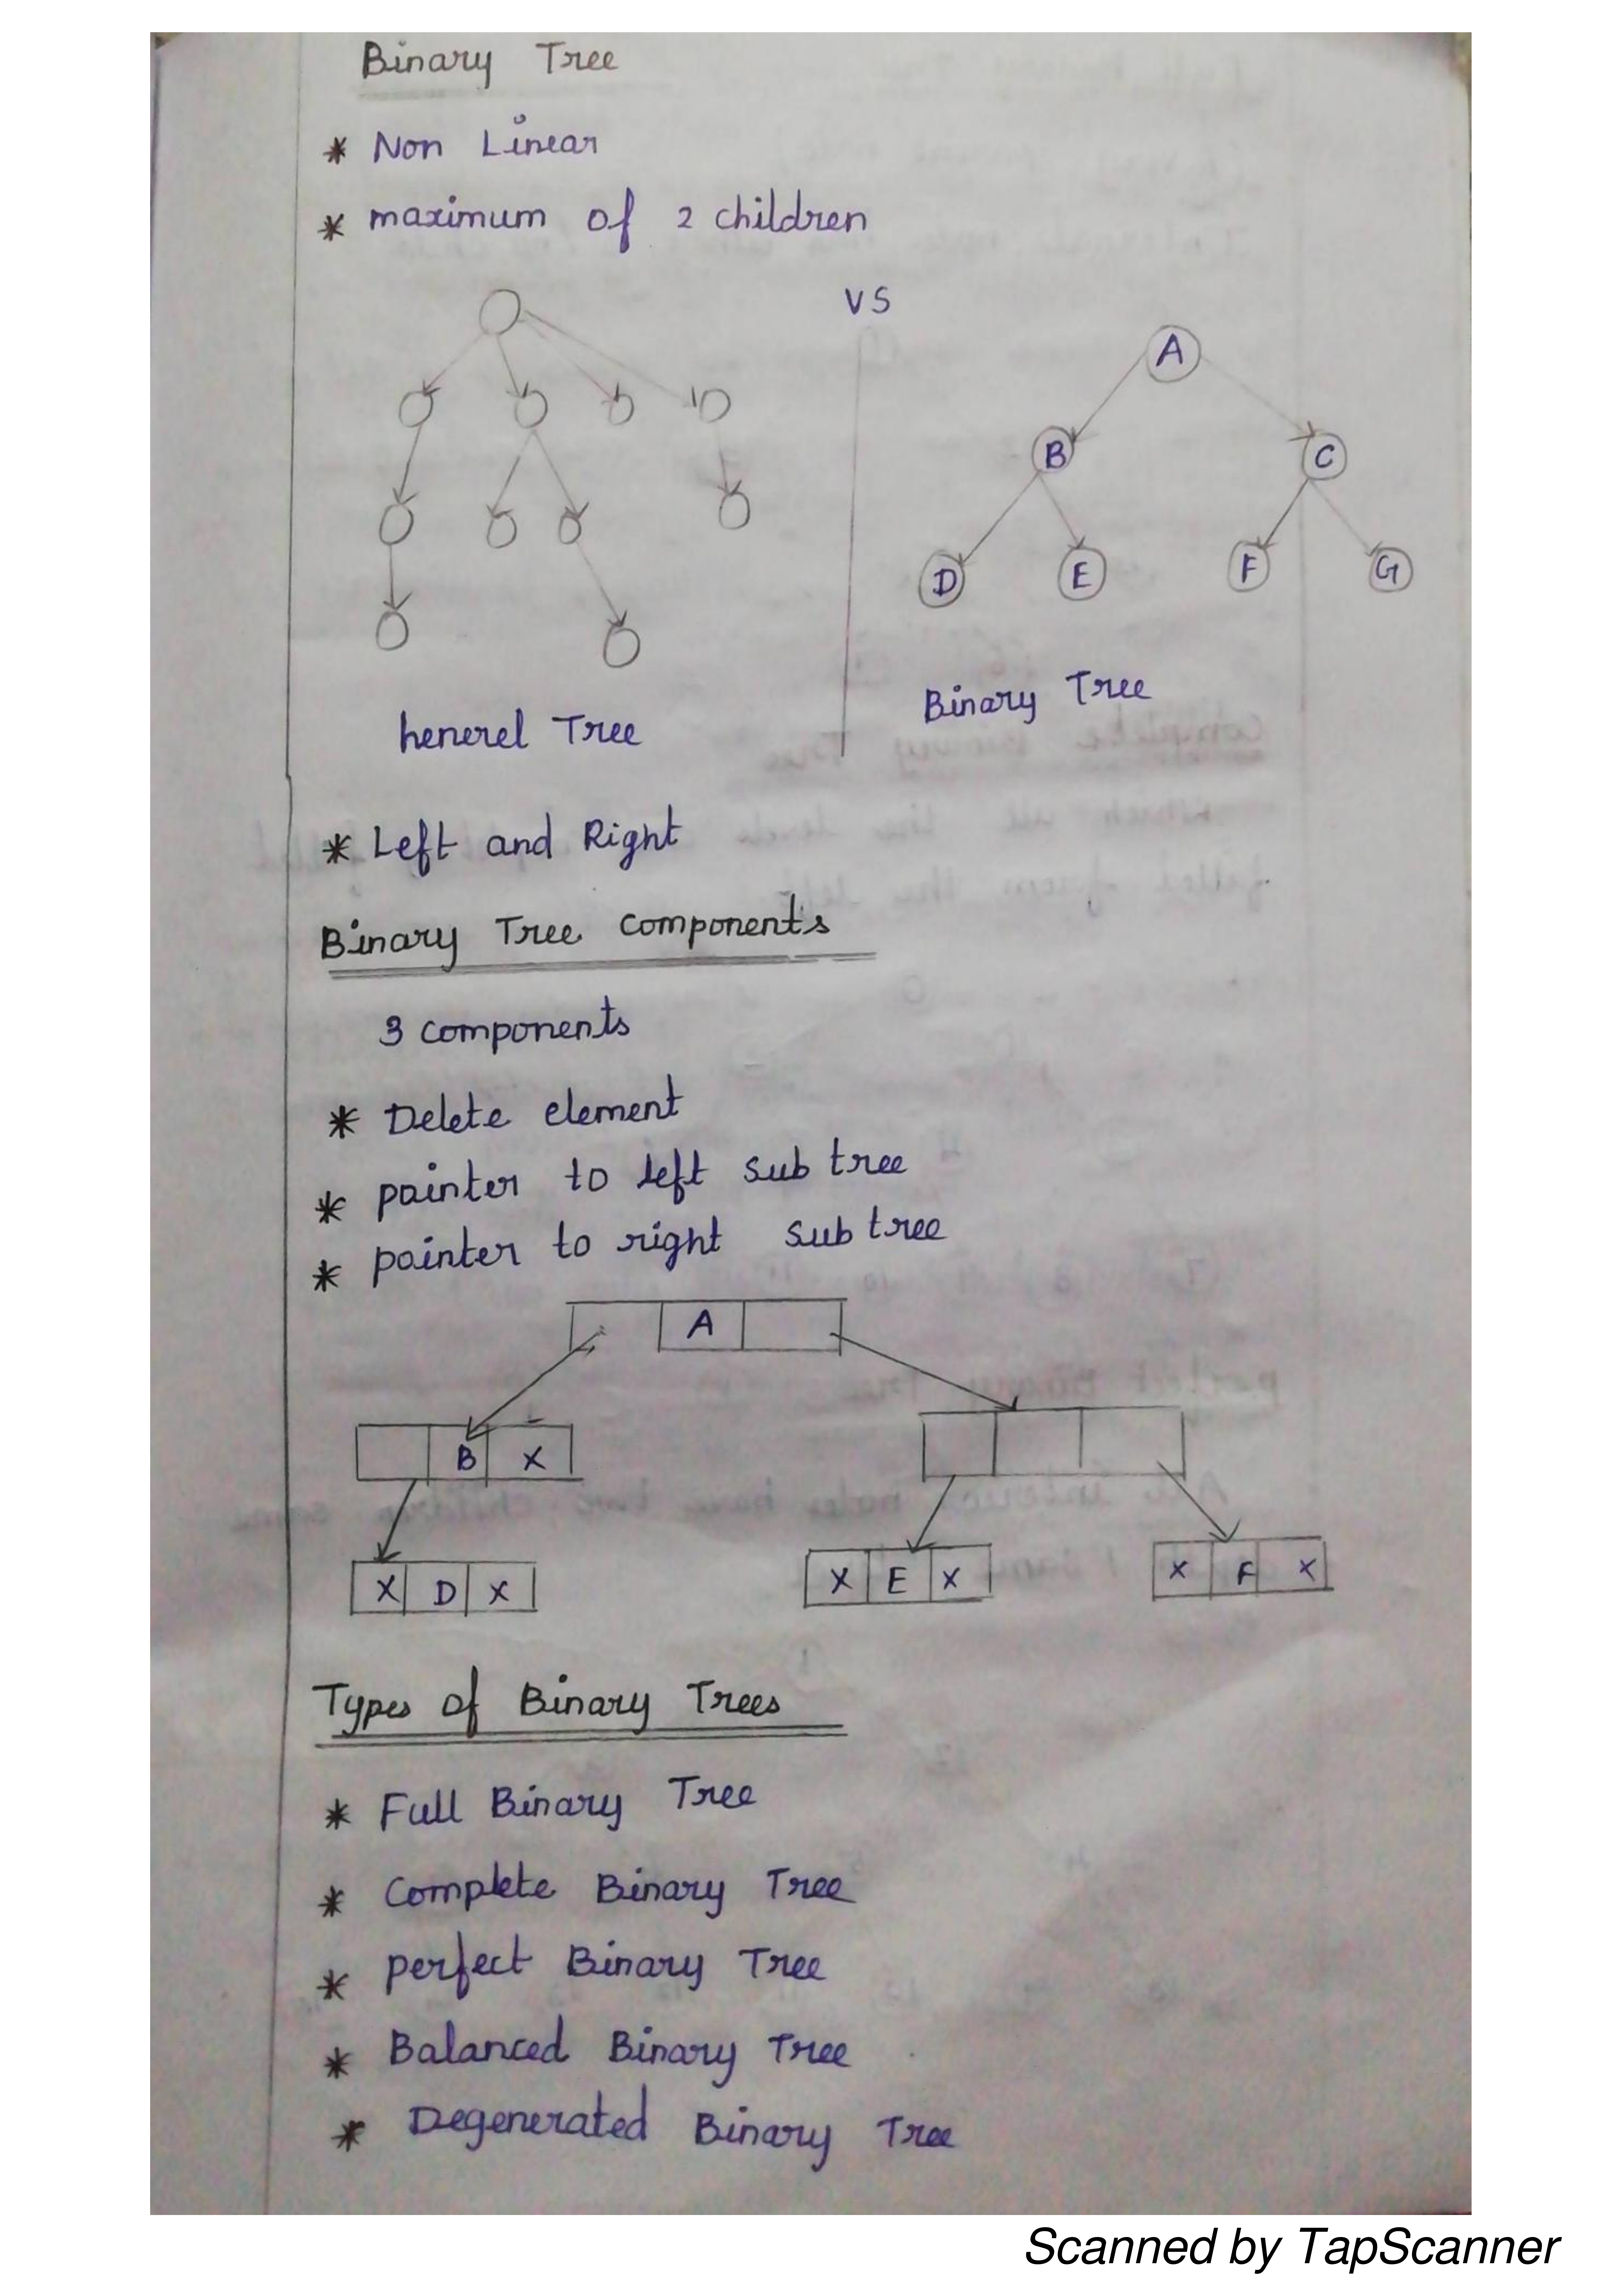 Binary Tree
* Non Linear
* maximum of 2 children
VS
A
B
C
D
E
F
G
Binary Tree
henerel Tree
* Left and Right
Binary Tree components
3 components
* Delete element
* pointer to left sub tree
* pointer to right sub tree
A
B X
X D X
X E X
X F X
Types of Binary Trees
* Full Binary Tree
* Complete Binary Tree
* perfect Binary Tree
* Balanced Binary Tree
* Degenerated Binary Tree
Scanned by TapScanner